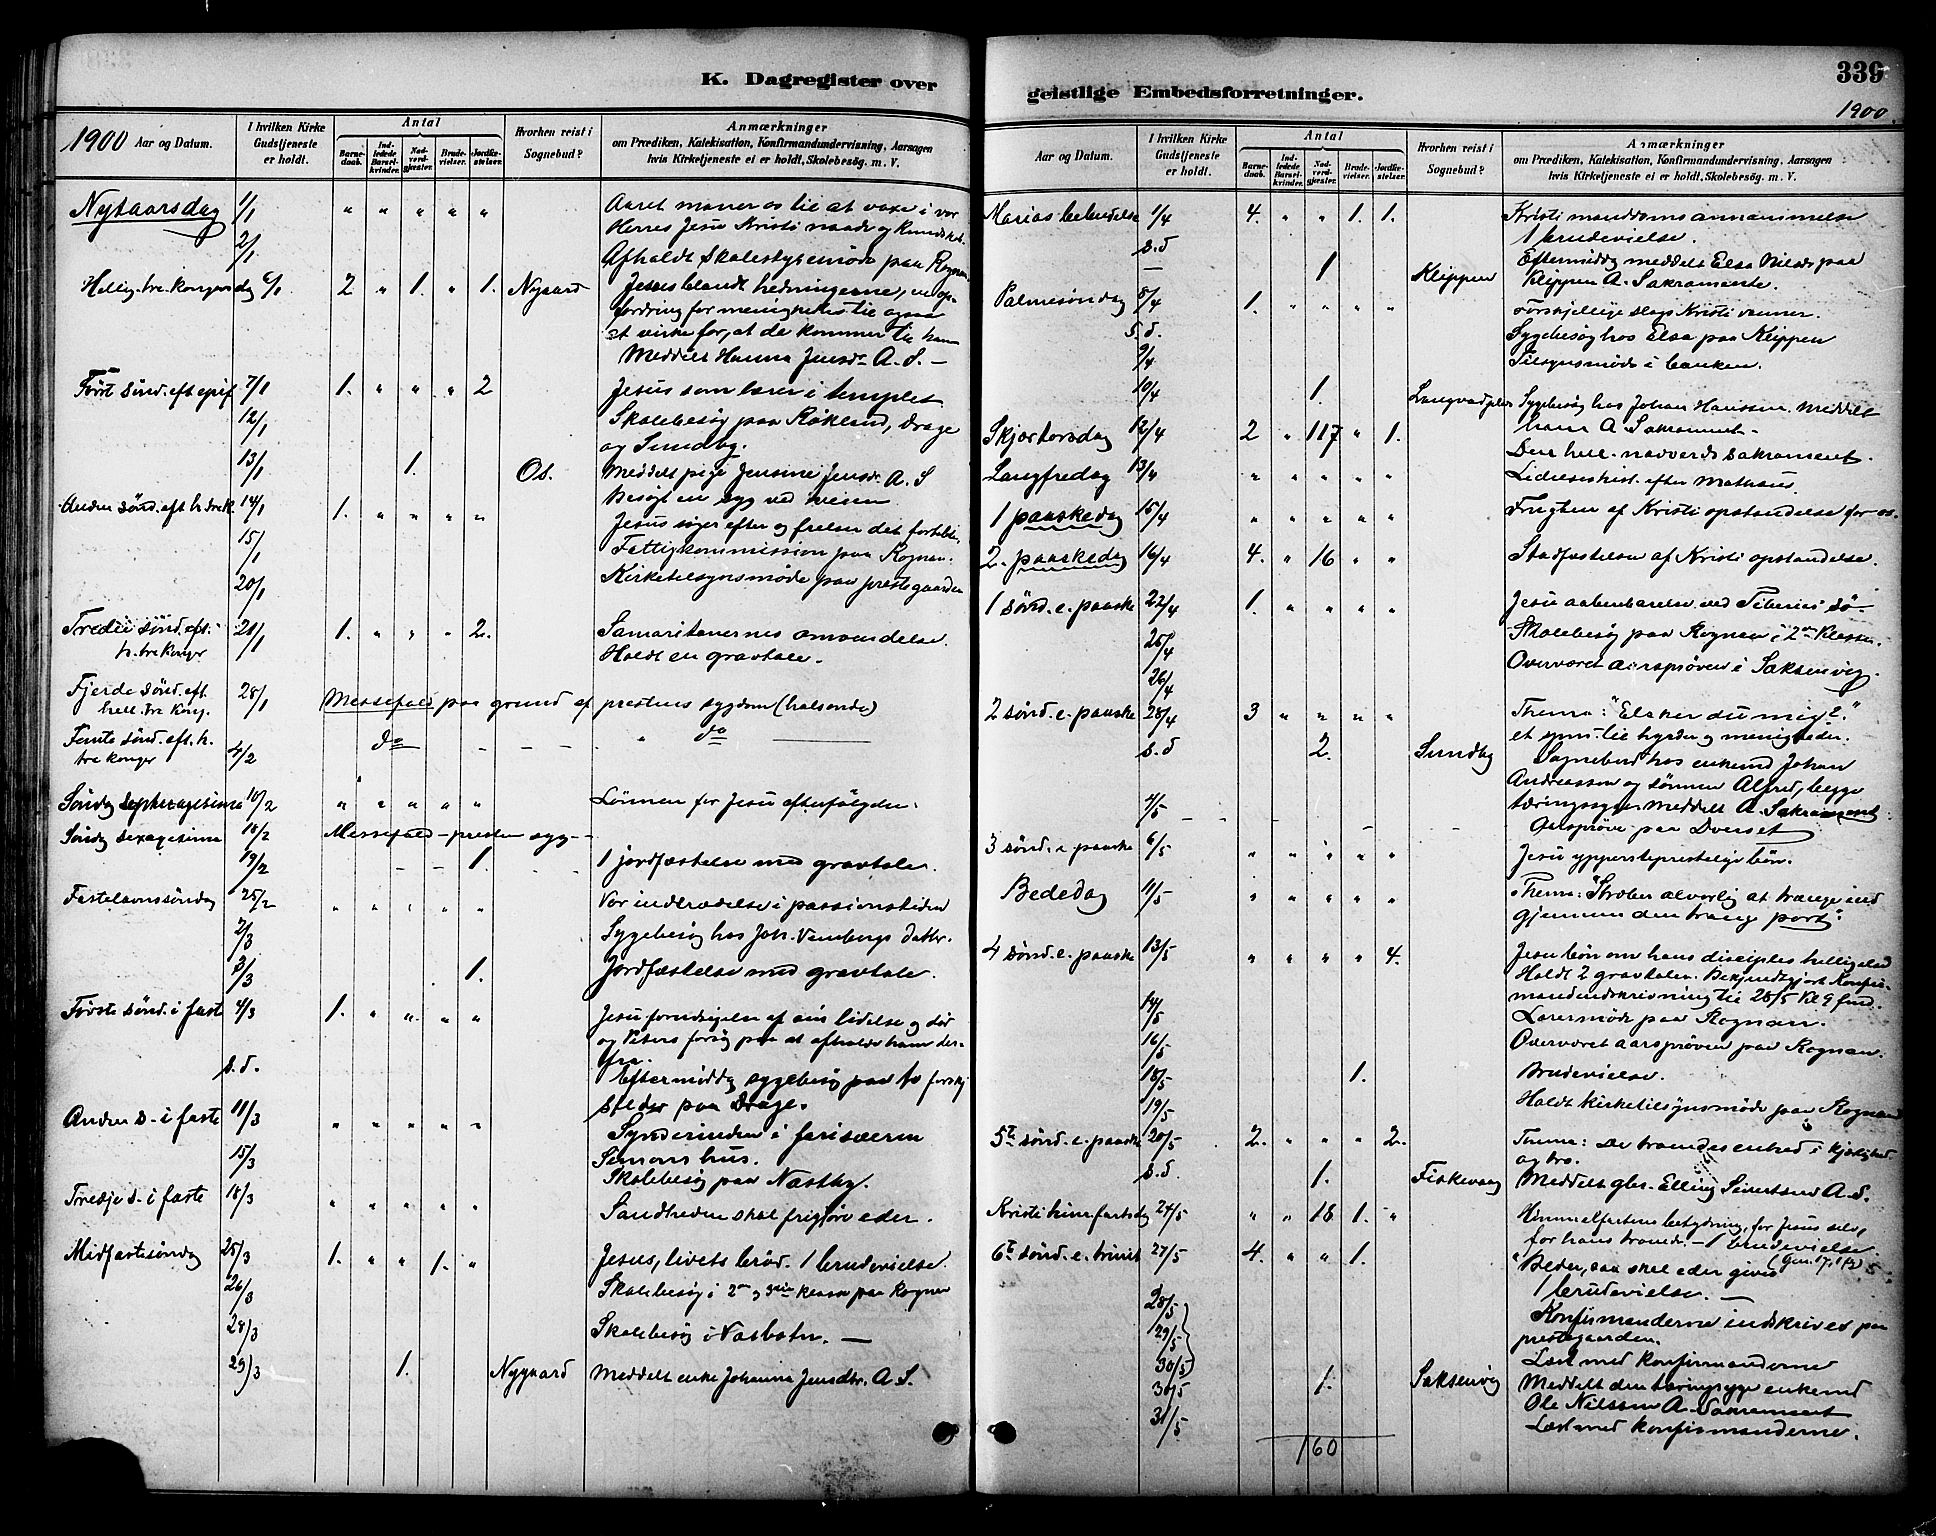 K. Dagregister over
1900 Aar og Datum.
I hvilken Kirke Gudstjeneste er holdt.
Antal
Barnedaab.
Indledede Barselkvinder.
Nadverdgjester.
Brudevielser.
Jordfæstelser.
Hvorhen reist i Sognebud?
Anmærkninger
om Prædiken, Katekisation, Konfirmandundervisning, Aarsagen
hvis Kirketjeneste ei er holdt, Skolebesög m. V.
Nytaarsdag 1/1 " " " " " Aaret maner os til at voxe i vor
Herres Jesu Kristi naade og kundskab.
2/1 Afholdt Skolestyremöde paa Rognan.
Hellig tre kongersdag 6/1 2 " 1. " 1. Nygaard Jesus blandt hedningerne, en op-
fordring for menigheden til ogsaa
at virke for, at de kommer til ham
Meddelt Hanna Jensdr A. S. –
Först sönd. eft. epif 7/1 1. " " " 2 Jesus som lærer i templet
12/1 Skolebesög paa Rökland, Drage
og Sundby.
13/1 1. Os. Meddelt pige Jensine Jensdr. A. S
Besögt en syg ved veien
Anden sönd. eft h. tre k. 14/1 1. " " " " Jesus söger efter og frelser det fortabte.
15/1 Fattigkommission paa Rognan.
20/1 Kirketilsynsmöde paa prestegaarden
Tredie sönd. eft. h. tre konger 21/1 1. " " " 2. Samaritanernes omvendelse.
Holdt en gravtale.
Fjerde sönd. eft. hell. tre kong. 28/1 Messefald paa grund af prestens sygdom (halsonde)
Femte sönd. eft. h. tre konger 4/2 do – – – " do
Söndag septuagesima 10/2 " " " " " Lönnen for Jesu efterfölgelse.
Söndag sexagesima 18/2 Messefald – presten syg – –
19/2 – – 1. 1 jordfæstelse med gravtale.
Fastelavnssöndag 25/2 " " " " " Vor indtrædelse i passionstiden
2/3 Sygebesög hos Joh. Vembergs datter.
3/3 1. Jordfæstelse med gravtale.
Förste sönd. i faste 4/3 1. " " " " Jesu forudsigelse af sin lidelse og död
og Peters forsög paa at afholde ham der-
fra.
s. d. Eftermiddag sygebesög paa to forskj
steder paa Drage.
Anden s. i faste 11/3 " " " " " Synderinden i farisæeren
Simons hus.
15/3 Skolebesög paa Næstby.
Tredje s. i faste 18/3 " " " " " Sandheden skal frigjöre eder.
Midfastesöndag 25/3 1. " " 1. " Jesus, livets bröd. 1 brudevielse.
26/3 Skolebesög i 2den og 3die klasse paa Rognan
28/3 Skolebesög i Nasbotn. –
29/3 1. Nygaard Meddelt enke Johanna Jensdtr. A. S.
geistlige Embedsforretninger.
339
1900.
Aar og Datum.
I hvilken Kirke Gudstjeneste er holdt.
Antal
Barnedaab.
Indledede Barselkvinder.
Nadverdgjester.
Brudevielser.
Jordfæstelser.
Hvorhen reist i Sognebud?
Anmærkninger
om Prædiken, Katekisation, Konfirmandundervisning, Aarsagen
hvis Kirketjeneste ei er holdt, Skolebesög m. V.
Marias bebudelse 1/4 4. " " 1. 1. Kristi manddoms annammelse
1 brudevielse.
s. d – 1 Klippen Eftermiddag meddelt Elsa Nilsdr paa
Klippen A. Sakramente.
Palmesöndag 8/4 1. " " " " Forskjellige slags Kristi venner.
s. d. Sygebesög hos Elsa paa Klippen
9/4 Tilsynsmöde i banken.
10/4 1. Sygebesög hos Johan Hanssen. Meddelt
ham A. Sakrament–
Skjærtorsdag 12/4 2 " 117 " 1. Den hell. nadverds sakrament.
Langfredag 13/4 " " " " " Lidelseshist. efter Mathæus.
1 paaskedag 15/4 " " " " " Frugten af Kristi opstandelse for os.
2. paaskedag 16/4 4. " 16 " " Stadfæstelsen af Kristi opstandelse.
1 sönd. e. paaske 22/4 1. " " " " Jesu aabenbarelse ved Tiberias sö –
25/4 Skolebesög paa Rognan i 2den klasse.
26/4 Overværet aarspröven i Saksenvig.
2 sönd. e. paaske 28/4 3 " " " " Thema: "Elsker du mig?"
et spms. til hyrder og menigheder.
s. d 2. Sundby Sognebud hos enkemd Johan
Andreassen og sönnen Alfred, begge
tæringssyge meddelt A. Sakrament
4/5 – – – – Aarspröve paa Dverset
3 sönd. e paaske 6/5 " " " " " Jesu ypperstepresteligs bön.
Bededag 11/5 " " " " " Thema: "Stræber alvorlig at trænge ind
gjennem den trange port".
4 sönd. e. paaske 13/5 " " " " 4. Jesu bön om hans disciples helligelse
Holdt 2 gravtaler. Bekjendtgjort Konfir-
mandindskrivning til 28/5 Kl 9 fmd.
14/5 Lærermöde paa Rognan.
16/5 Overværet aarspröven paa Rognan.
18/5 1. Brudevielse.
19/5 Holdt kirketilsynsmöde paa Rognan
5te sönd. e. paaske 20/5 2. " " " 2. Thema: De troendes enhed i kjærlighed
og tro.
s. d 1. Fiskevaag Meddelt gbr. Elling Sivertsens A. S.
Kristi himmelfartsdag 24/5 " " 18 1. " Himmelfartens betydning, for Jesus selv,
for hans troende. – 1 brudevielse.
6te sönd. e. trinit 27/5 4. " " 1. "Beder, saa skal eder gives"
1 brudevielse. –
28/5 Konfirmanderne indskrives paa
prestegaarden.
29/5
30/5 Læst med konfirmanderne
30/5 1. Saksenvig Meddelt den tæringssyge enkemd
Ole Nilssen A. Sakrament
31/5 Læst med konfirmanderne.
160